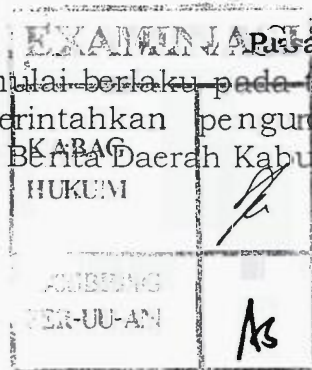 EXAMINA Pasa
mulai berlaku pada
erintahkan pengu
Berita Daerah Kabu
KABAG
HUKUM
PER-UU-AN